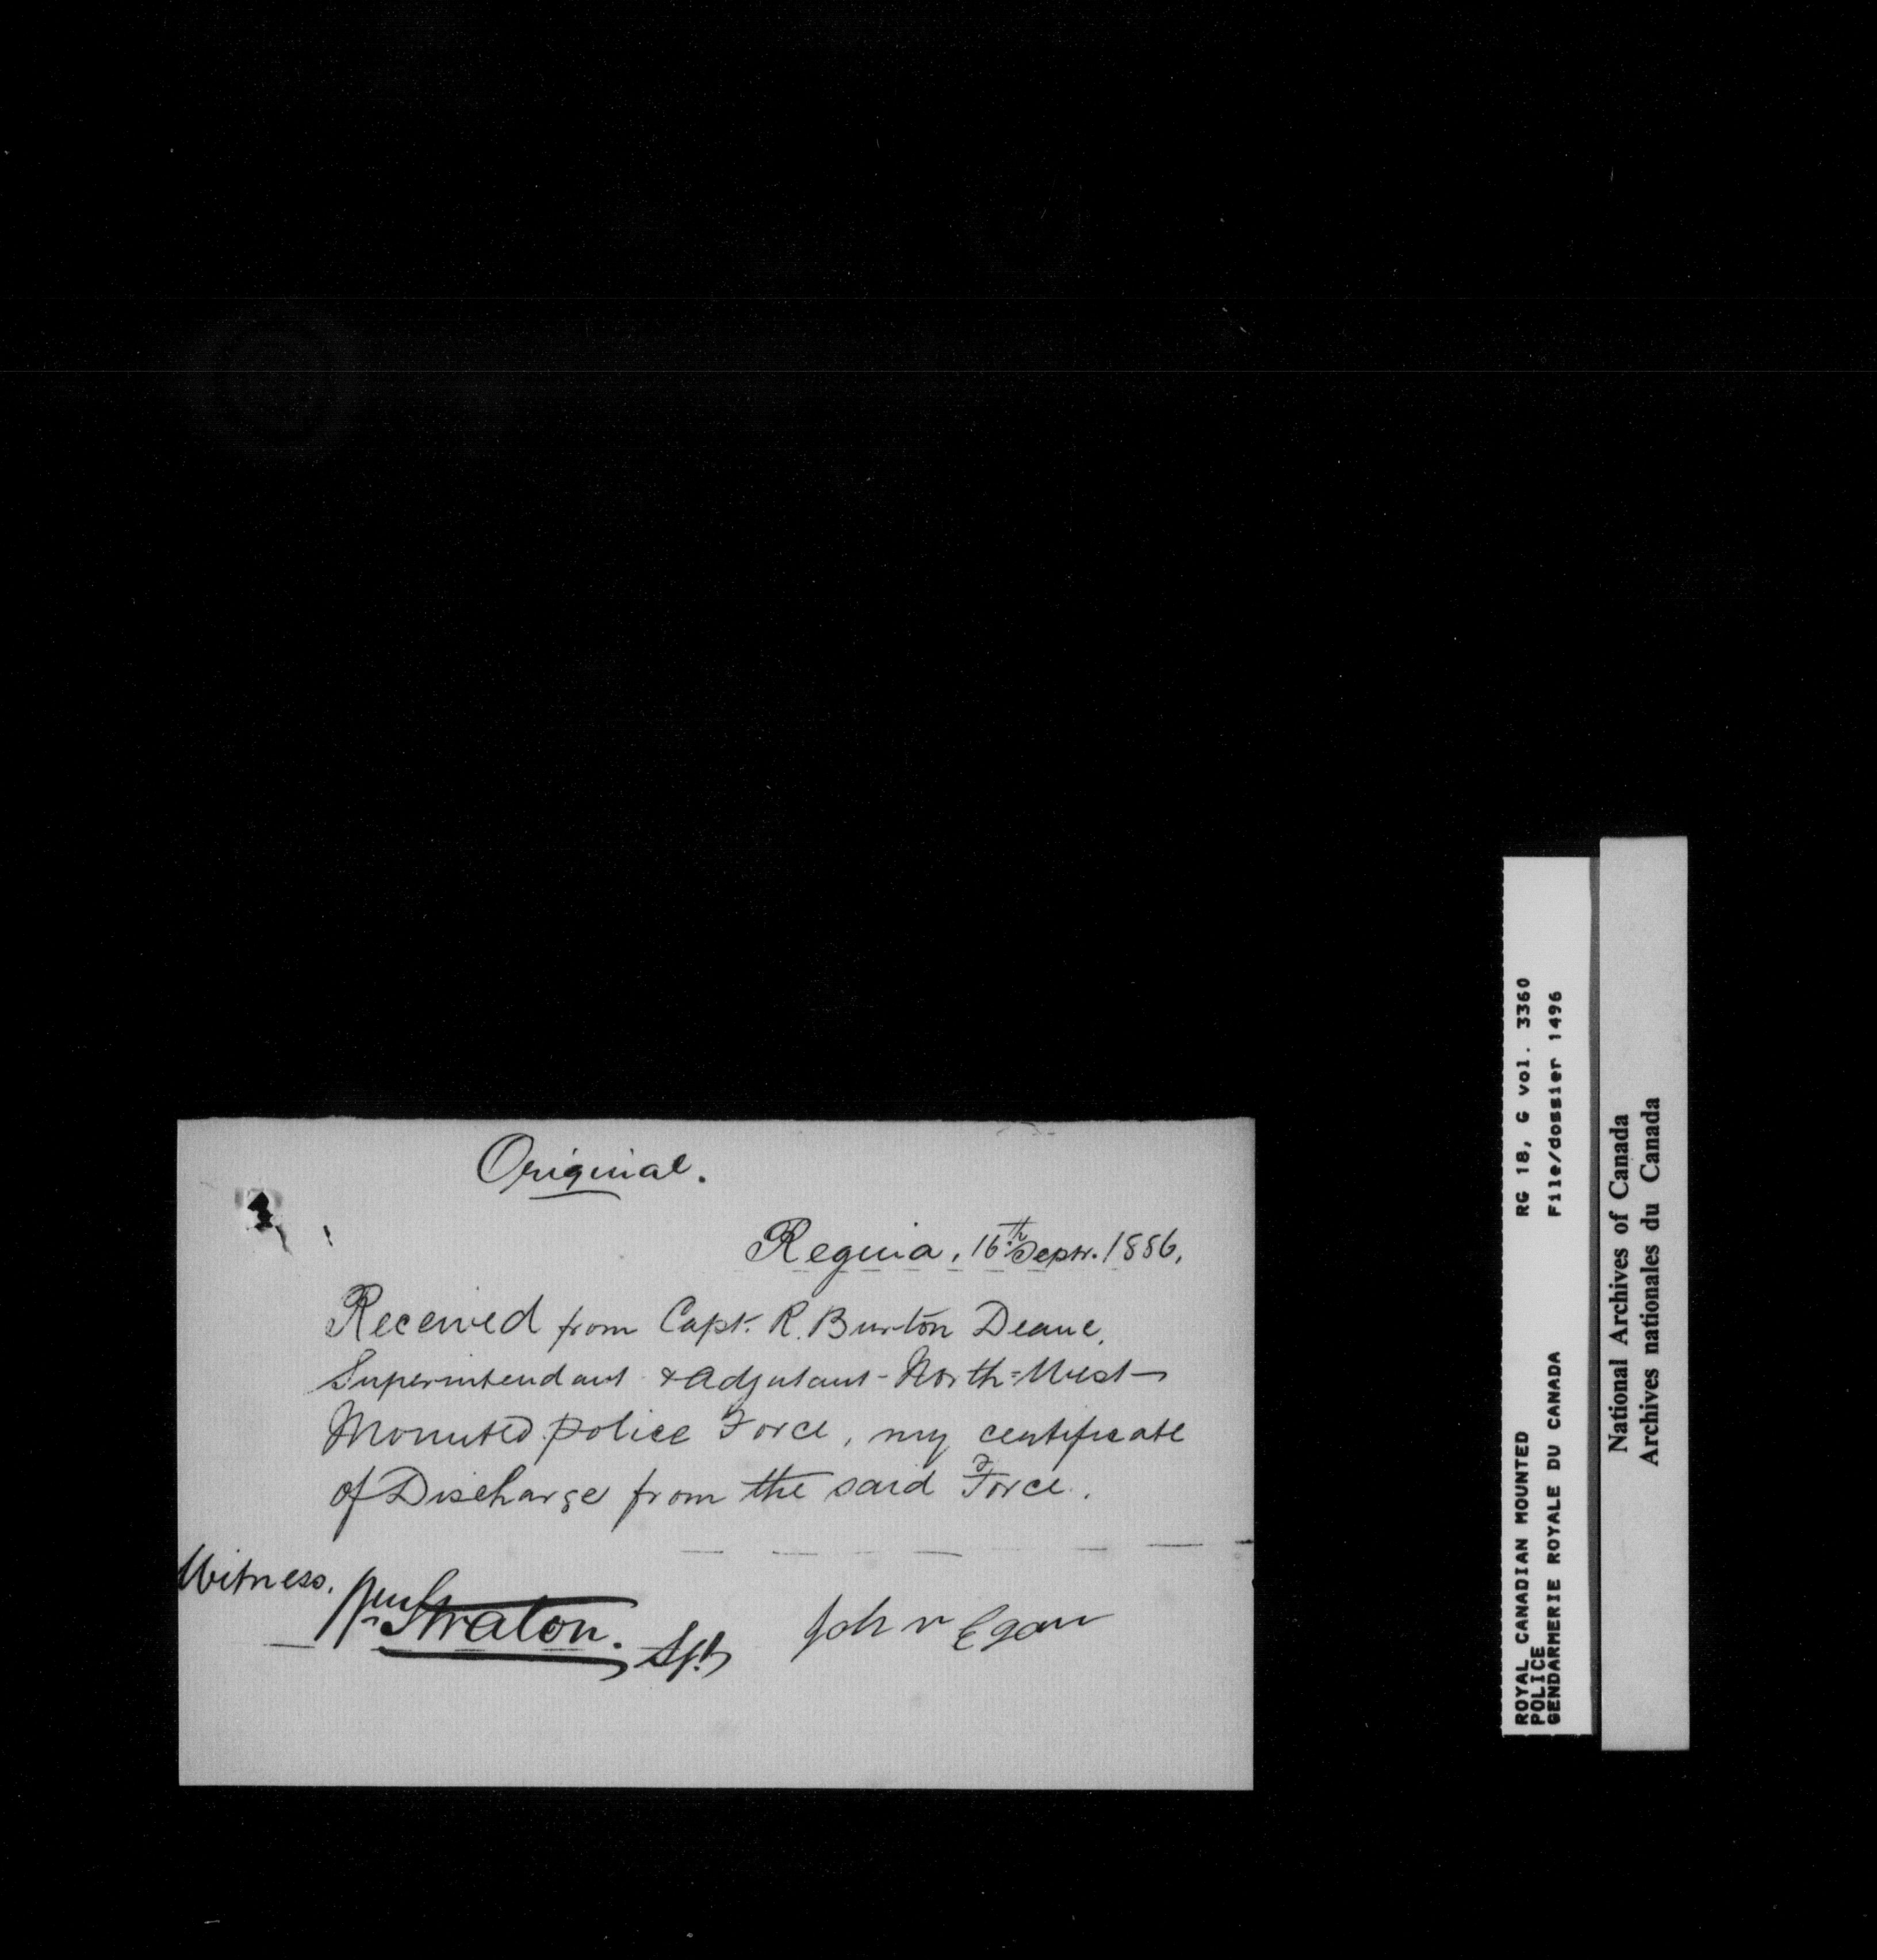 Original.
Regina, 16th Septr. 1886,
Received from Capt. R. Burton Deane,
Superintendant & Adjutant - North=West
Mounted Police Force, my certificate
of Discharge from the said Force.
Witness.
Straton.
John Egan
ROYAL CANADIAN MOUNTED
POLICE
GENDARMERIE ROYALE DU CANADA
RG 18, G vol. 3360
File/dossier 1496
National Archives of Canada
Archives nationales du Canada